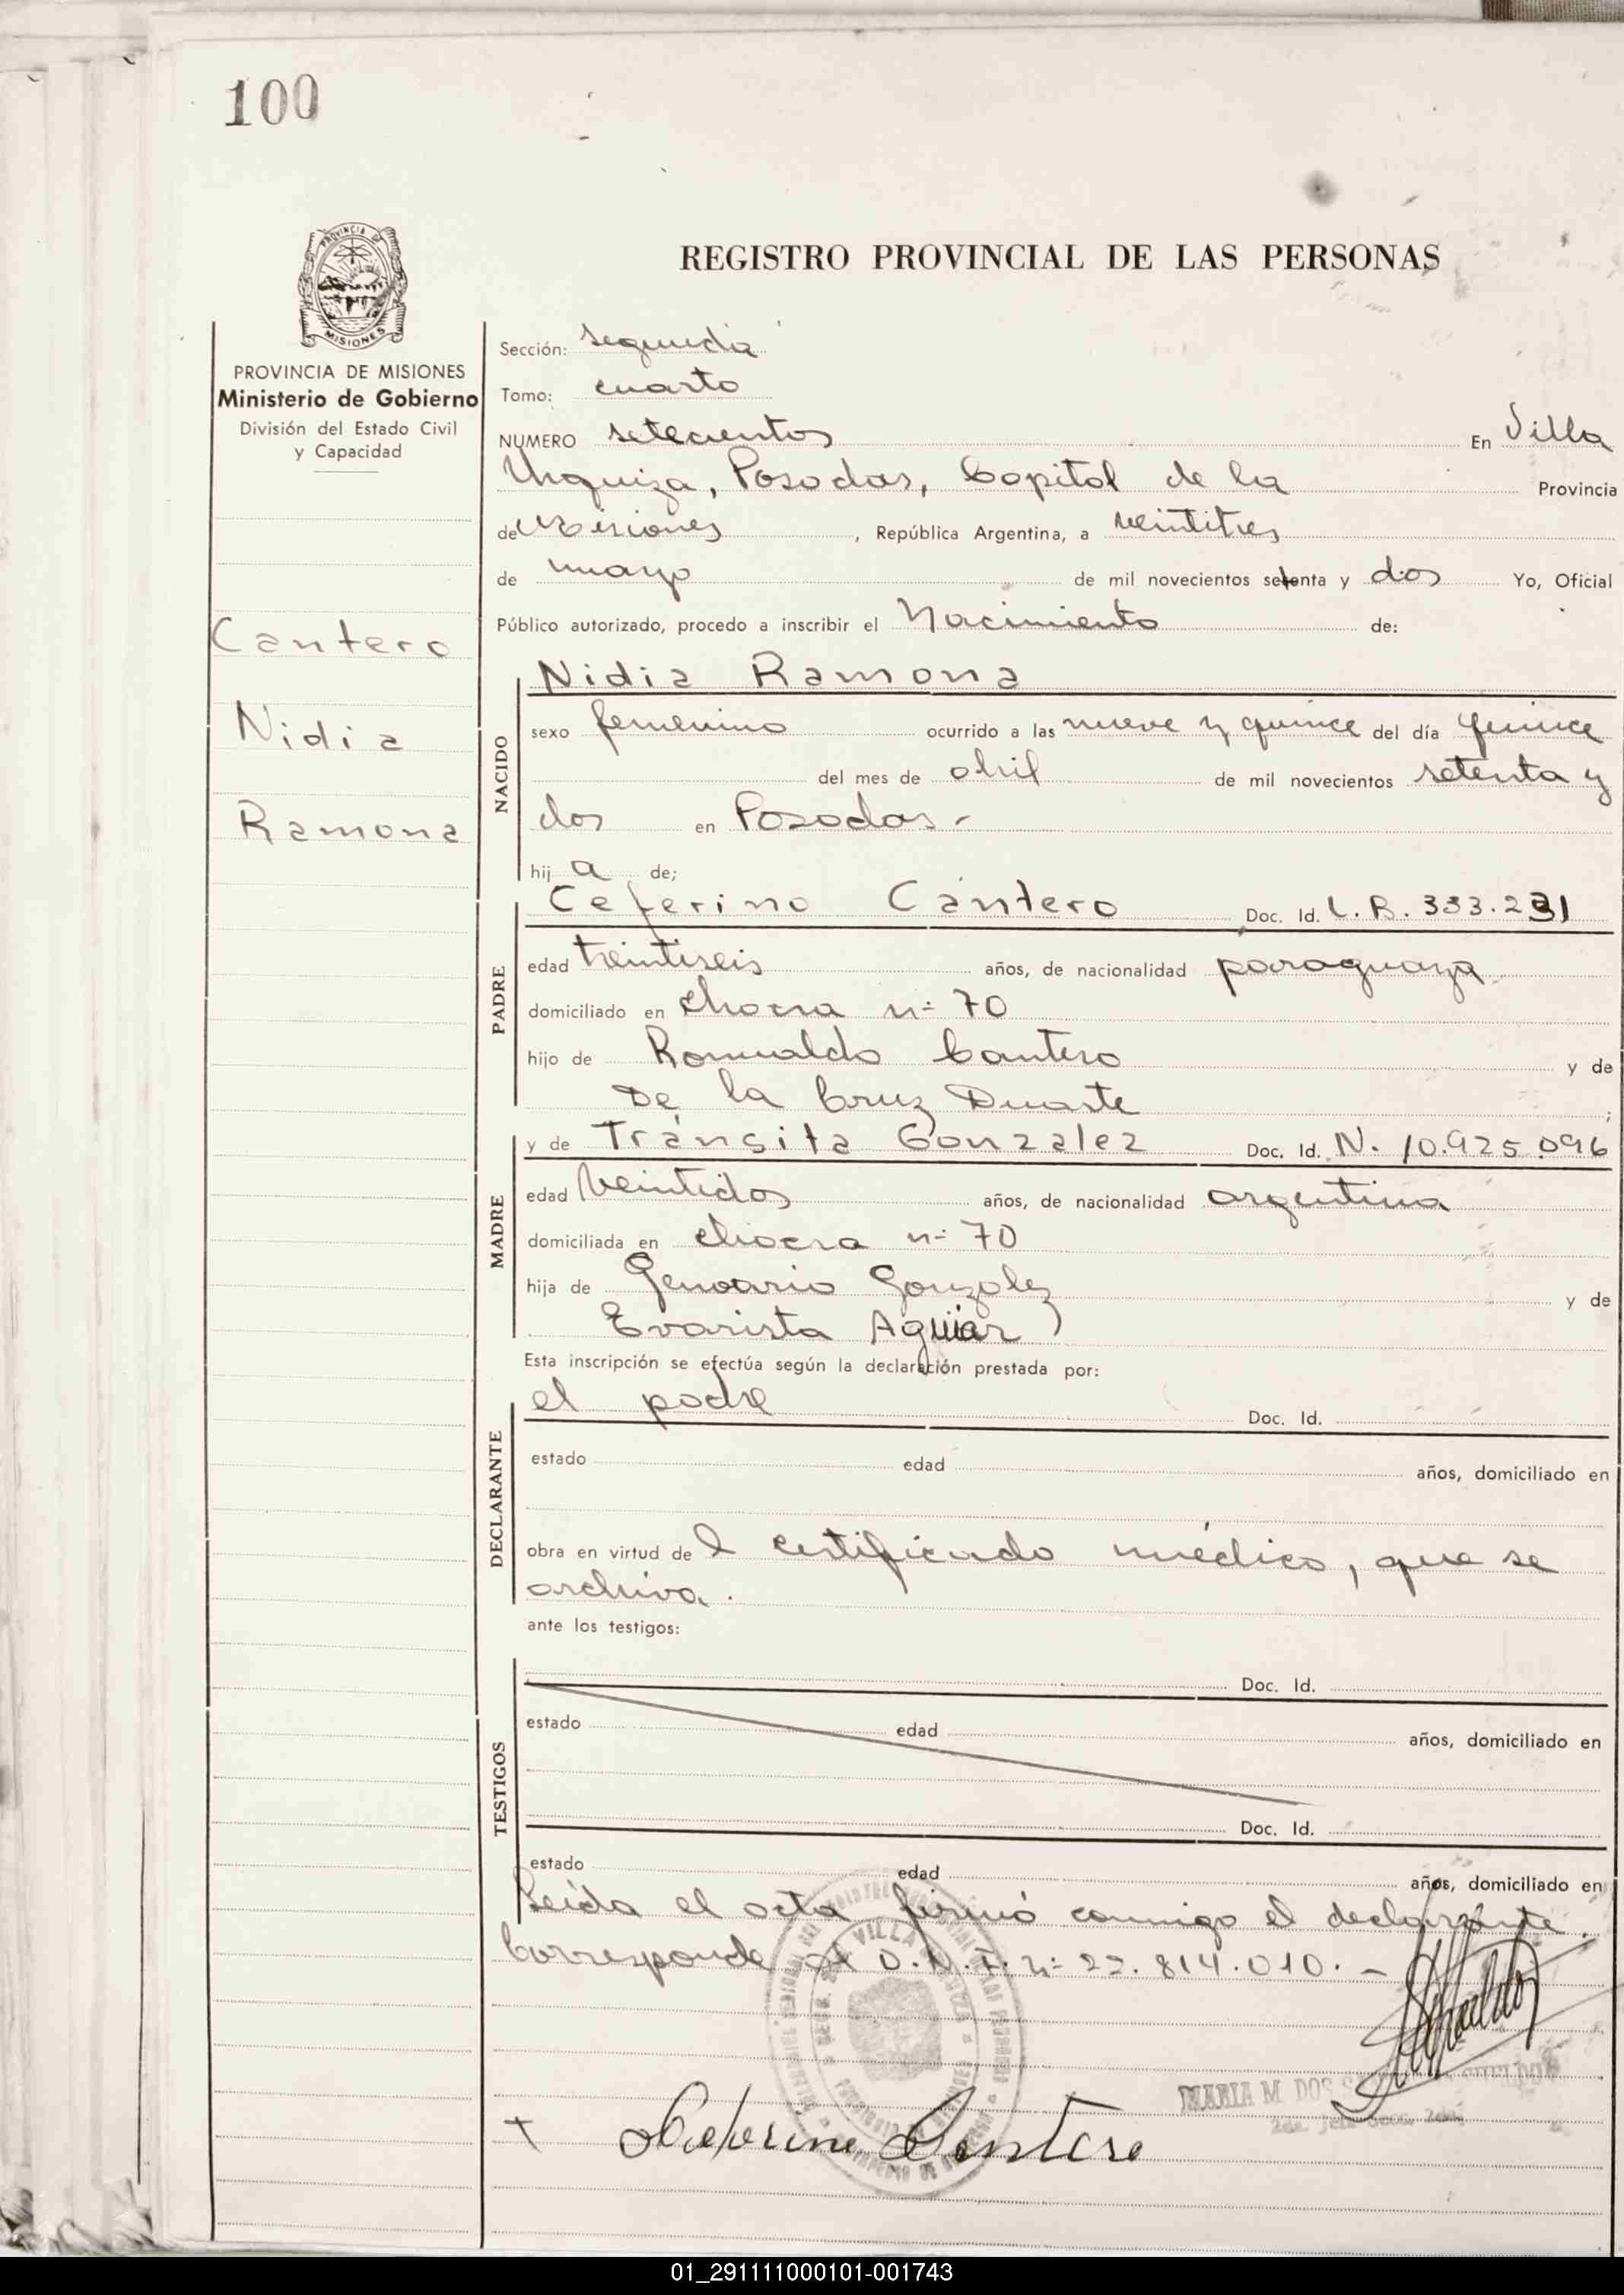 100
PROVINCIA DE
MISIONES
REGISTRO PROVINCIAL DE LAS PERSONAS
PROVINCIA DE MISIONES
Ministerio de Gobierno
División del Estado Civil
y Capacidad
Cantero
Nidia
Ramona
Sección: segunda
Tomo: cuarto
NUMERO setecientos En Villa
Urquiza, Posadas, Capital de la Provincia
de Misiones, República Argentina, a veintitres
de mayo de mil novecientos setenta y dos Yo, Oficial
Público autorizado, procedo a inscribir el Nacimiento de:
NACIDO
Nidia Ramona
sexo femenino ocurrido a las nueve y quince del día quince
del mes de abril de mil novecientos setenta y
dos en Posadas.-
hij a de;
PADRE
Ceferino Cantero Doc. Id. C.R. 333.231
edad treintiseis años, de nacionalidad paraguaya
domiciliado en chacra n= 70
hijo de Romualdo Cantero y de
De la Cruz Duarte ;
MADRE
y de Tránsita Gonzalez Doc. Id. N. 10.925.096
edad veintidos años, de nacionalidad argentina
domiciliada en chacra n= 70
hija de Genoario Gonzalez y de
Evarista Aguiar
Esta inscripción se efectúa según la declaración prestada por:
DECLARANTE
el padre Doc. Id.
estado edad años, domiciliado en
obra en virtud de l certificado médico, que se
archiva.
ante los testigos:
TESTIGOS
Doc. Id.
estado edad años, domiciliado en
Doc. Id.
estado edad años, domiciliado en
Leída el acta firmó conmigo el declarante.
Corresponde al D.N.I. n= 22.814.010.-
MARIA M. DOS
2da. Jefe Secc. 2da.
Ceferino Cantero
01_291111000101-001743